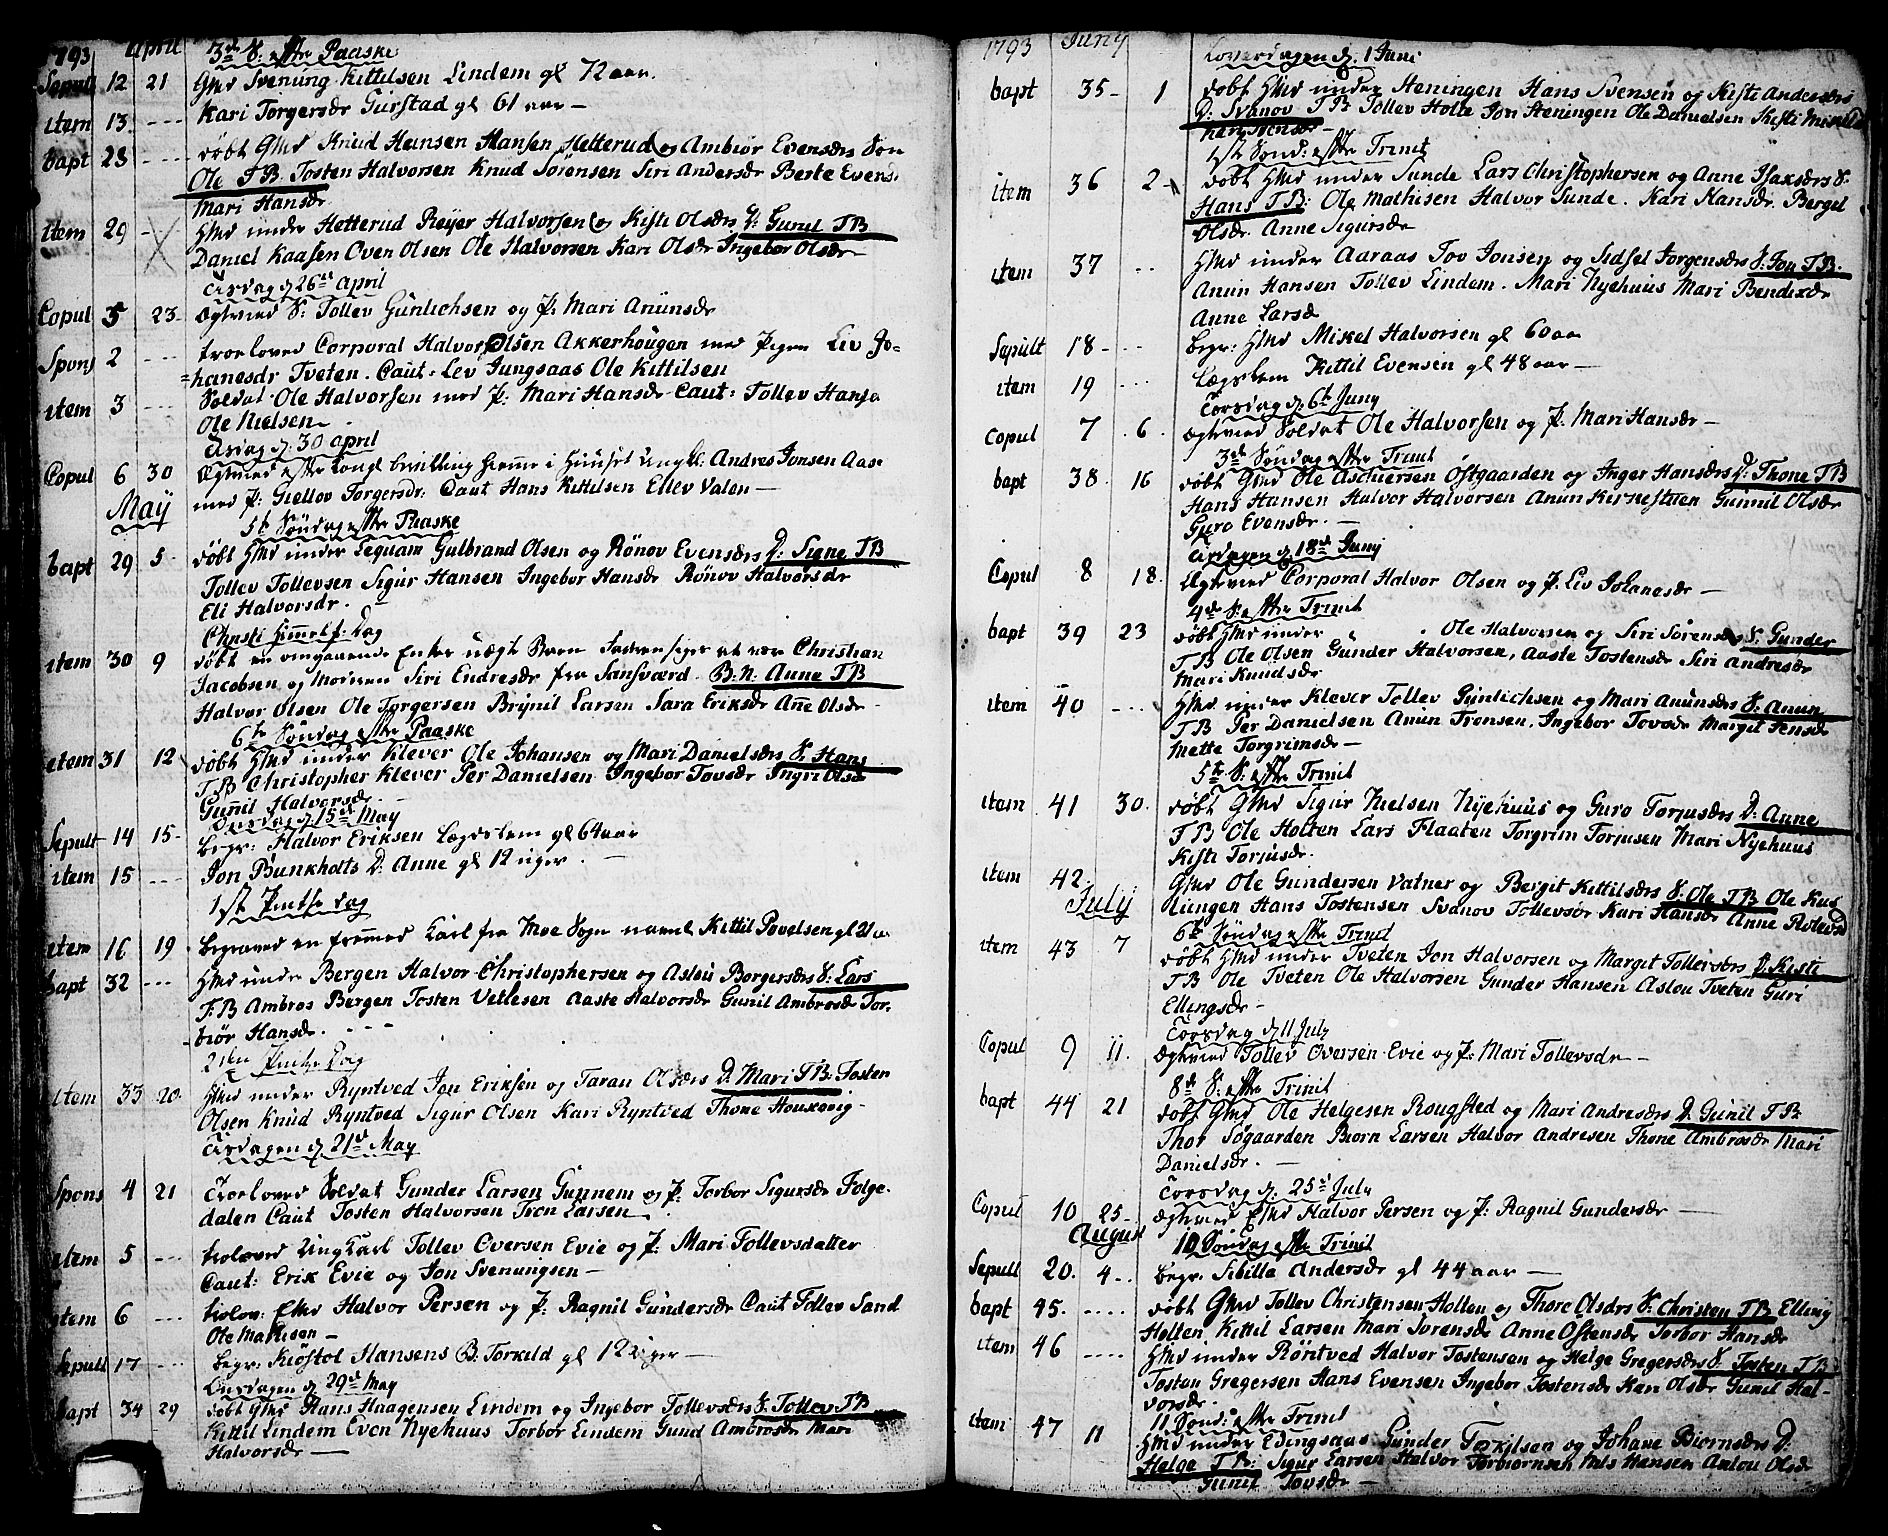 1793 April 3de S. efter Paaske
Sepult 12 21 Gmd Svenung Kittilsen Lindem gl 72 aar.
item 13 --- Kari Torgersdr Gurstad gl 61 aar —
bapt 28 --- døbt Gmd Knud Hansen Hansen Hetterud og Ambiør Evensdrs Søn
Ole T B Tosten Halvorsen Knud Sørensen Siri Andersdr Berte Evens
Mari Hansdr
item 29 - Hmd under Hetterud Reyer Halvorsen og Kisti Olsdrs D: Gunil T B
Daniel Kaasen Even Olsen Ole Halvorsen Kari Olsdr Ingebor Olsdr
Tirsdag d 26de April
Copul 5 23 Egtevied S: Tollev Gunlichsen og P: Mari Anunsdr
Spons 2 --- troeloved Corporal Halvor Olsen Akkerhougen med Pigen Liv Jo=
=hanesdr Tveten. Caut: Lev Jungsaas Ole Kittilsen
item 3 --- Soldat Ole Halvorsen med P: Mari Hansdr Caut: Tollev Hanse
Ole Nielsen
Tirsdag d. 30 April
Copul 6 30 Egtevied efter kongl bevilling hiemme i Huuset Ungkl: Andres Jonsen Aas
med P: Giellov Torgersdr: Caut Hans Kittilsen Ellev Valen —
May
5te Søndag efter Paaske
bapt 29 5 døbt Hmd under Leqvam Gulbrand Olsen og Rønov Evensdrs D: Signe T B
Tollev Tollevsen Sigur Hansen Ingebor Hansdr Rønov Halvorsdr
Eli Halvorsdr.
Christi Himmelf: Dag
item 30 9 døbt en omgaaende Enke uægt Barn Faderen siges at være Christian
Jacobsen og Moderen Siri Endresdr fra Sansværd B: N: Anne T B
Halvor Olsen Ole Torgersen Brynil Larsen Sara Eriksdr Anne Olsdr
6te Søndag efter Paaske
item 31 12 døbt Hmd under Klever Ole Johansen og Mari Danielsdrs S. Hans
T B Christopher Klever Per Danielsen Ingebor Tovsdr Ingri Olsd
Gunnil Halvorsdr
Onsdag d 15de May
Sepult 14 15 Begr: Halvor Eriksen Lægdslem gl 64 aar
item 15 --- Jon Bunkholts D: Anne gl 12 uger. —
1ste Pintse dag
item 16 19 Begraved en fremmed Karl fra Moe Sogn navnl Kittil Povelsen gl 21 a
bapt 32 --- Hmd under Bergen Halvor Christophersen og Aslou Borgersdrs S: Lars
T B Ambros Bergen Tosten Vetlesen Aaste Halvorsdr Gunil Ambrosdr Tor
biør Hansdr.
2den Pintse Dag
item 33 20 Hmd under Ryntved Jon Eriksen og Taran Olsdrs D. Mari T B. Tosten
Olsen Knud Ryntved Sigur Olsen Kari Ryntved Thone Houxvrig
Tirsdagen d. 21de May
Spons 4 21 Troeloved Soldat Gunder Larsen Gunnem og P: Torbor Sigursdr Folge
dalen Caut Tosten Halvorsen Tron Larsen
item 5 --- trolovied Ungkarl Tollev Oversen Evie og P: Mari Tollevsdatter
Caut: Erik Evie og Jon Svenungsen —
item 6 --- trolov: Ekd Halvor Persen og P: Ragnil Gundersdr Caut Tollev Sand
Ole Matisen —
Sepult 17 --- Begr: Kiøstol Hansens B. Torkild gl 12 uger —
Onsdagen d 29de May
bapt 34 29 døbt Gmd Hans Haagensen Lindem og Ingebor Tollevsdrs S. Tollev T B
Kittil Lindem Even Nyehuus Torbor Lindem Gund Ambrosdr Mari
Halvorsdr —
1793 Juny Loverdagen d. 1 Juni
bapt 35 1 døbt Hmd under Heningen Hans Svensen og Kisti Andersdrs
D: Svanov T B Tollev Holte Jon Heningen Ole Danielsen Kisti
Kari Svensdr —
1ste Sønd: efter Trinit
item 36 2 døbt Hmd under Sunde Lars Christophersen og Anne Isaxsdrs S.
Hans T B: Ole Mathisen Halvor Sunde. Kari Hansdr. Bergel
Olsdr. Anne Sigursdr
item 37 .. Hmd under Aaraas Tov Jonsen og Sidsel Jorgensdrs S. Jon T B.
Anun Hansen Tollev Lindem. Mari Nyehuus Mari Bendixdr
Anne Larsd
Sepult 18 --- Begr: Hmd Mikel Halvorsen gl 60 aa
item 19 ... Lægslem Kittil Evensen gl 48 aar —
Torsdag d. 6te Juny
Copul 7 6. Egtevied Soldat Ole Halvorsen og P. Mari Hansdr —
3de Søndag efter Trinit
bapt 38 16 døbt Gmd Ole Aschuersen Østgaarden og Inger Hansdrs D: Thone T B
Hans Hansen Halvor Halvorsen Anun Kirnestuen Gunnil Olsdr
Guro Evensdr. —
Tirsdagen d 18de Juny
Copul 8 18. Egtevied Corporal Halvor Olsen og P. Liv Johanesdr —
4de S: efter Trinit
bapt 39 23 døbt Hmd under Ole Halvorsen og Siri Sørensdrs S. Gunder
T B Ole Olsen Gunder Halvorsen, Aaste Tostensdr Siri Andresdr
Mari Knudsdr
item 40 --- Hmd under Klever Tollev Gunlichsen og Mari Anunsdrs S. Anun
T B Per Danielsen Anun Tronsen. Ingebor Tovsdr Margit Jensd
Mette Torgrimsdr —
5te S: efter Trinit
item 41 30. døbt Gmd Sigur Nielsen Nyehuus og Guro Torjusdrs D: Anne
T B Ole Holten Lars Flaaten Torgrim Torjusen Mari Nyehuus
Kisti Torjusdr.
item 42 Gmd Ole Gundersen Vatner og Bergit Kittilsdrs S. Ole T B Ole Kas
July liungen Hans Tostensen Svanov Tollevsdr Kari Hansdr Anne
6te Søndag efter Trinit
item 43 7 døbt Hmd under Tveten Jon Halvorsen og Margit Tollevsdrs D. Kisti
T B Ole Tveten Ole Halvorsen Gunder Hansen Aslou Tveten Guri
Ellingsdr —
Torsdag d 11 July
Copul 9 11. Egtevied Tollev Oversen Evie og P: Mari Tollevsdr —
8de S: efter Trinit
bapt 44 21 døbt Gmd Ole Helgesen Rougsted og Mari Andresdrs D. Gunil T B
Thor Søgaarden Biorn Larsen Halvor Andresen Thone Ambrosdr Mari
Danielsdr. —
Torsdag d. 25de July
Copul 10 25 Egtevied Ekd Halvor Persen og P: Ragnil Gundersdr —
August 10 Søndag efter Trinit
Sepult 20. 4 Begr: Sibille Andersdr gl 44 aar —
bapt 45. .... døbt Gmd Tollev Christensen Holten og Thore Olsdrs S: Christen T B Elling
Holten Kittil Larsen Mari Sorensdr Anne Ostensdr Torbor Hansdr
item 46 .... Hmd under Røntved Halvor Tostensen og Helge Gregersdrs S. Tosten T B
Tostan Gregersen Hans Evensen Ingebor Tostensdr Kari Olsdr Gunil Hal-
vorsdr.
11 Sønd: efter Trinit
item 47 11 Hmd under Edingsaas Gunder Torkilsen og Johane Biørnsdrs D:
Helge T B: Sigur Larsen Halvor Torbiornsen Nils Hansen Aslou Olsdr
Gunil Tovsdr —